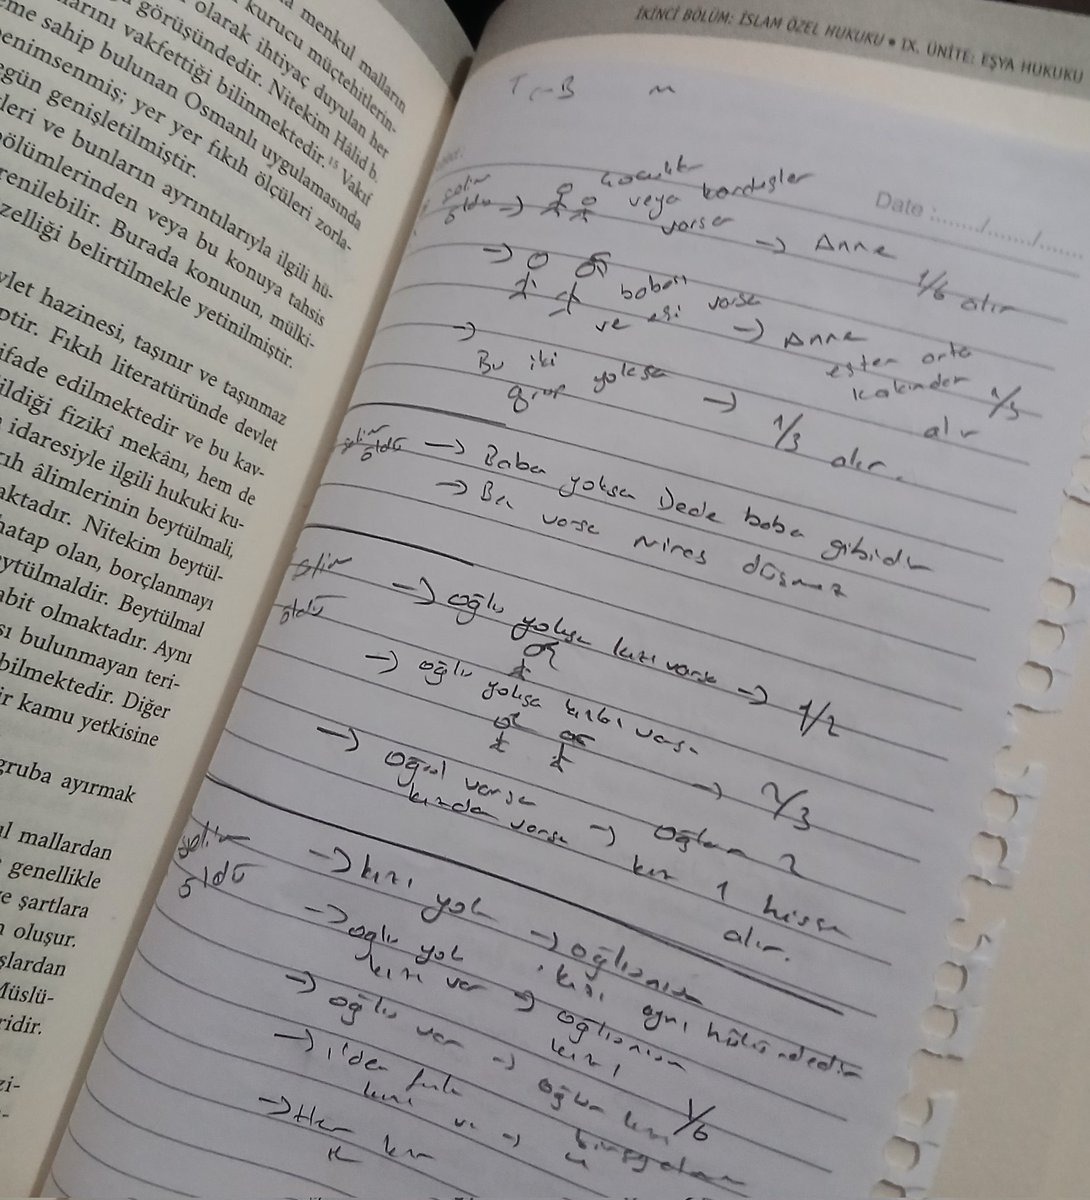 menkul malların
kurucu müçtehitlerin-
olarak ihtiyaç duyulan her
görüşündedir. Nitekim Hâlid b.
arını vakfettiği bilinmektedir.¹⁵ Vakıf
eme sahip bulunan Osmanlı uygulamasında
enimsenmiş; yer yer fıkıh ölçüleri zorla-
gün genişletilmiştir.
leri ve bunların ayrıntılarıyla ilgili hü-
bölümlerinden veya bu konuya tahsis
renilebilir. Burada konunun, mülki-
zelliği belirtilmekle yetinilmiştir.
vlet hazinesi, taşınır ve taşınmaz
ptir. Fıkıh literatüründe devlet
ifade edilmektedir ve bu kav-
ildiği fizikî mekânı, hem de
idaresiyle ilgili hukuki ku-
ıh âlimlerinin beytülmali,
aktadır. Nitekim beytül-
hatap olan, borçlanmayı
eytülmaldir. Beytülmal
abit olmaktadır. Aynı
sı bulunmayan teri-
bilmektedir. Diğer
ir kamu yetkisine
gruba ayırmak
ul mallardan
genellikle
e şartlara
oluşur.
şlardan
Müslü-
ridir.
zi-
İKİNCİ BÖLÜM: İSLAM ÖZEL HUKUKU • IX. ÜNİTE: EŞYA HUKUKU
Date :....../....../......
öldü → veya kardeşler
varsa → Anne 1/6 alır
→ babası varsa
ve eşi → Anne
eşten arta
kalandan 1/3
alır
→ Bu iki yoksa
→ 1/3 alır.
öldü → Baba yoksa Dede baba gibidir
→ Ba varsa miras düşmez
öldü → oğlu yoksa kızı varsa → 1/2
→ oğlu yoksa kızları varsa
→ 2/3
→ oğul varsa
kızda varsa → oğlan 2
kız 1 hisse
alır.
öldü → kızı yok → oğlunun
kızı aynı hükümdedir
→ oğlu yok
kızı var → oğlunun
kızı 1/6
→ oğlu var → oğlun kızı
→ 1'den fazla
kızı var →
→ Her kız